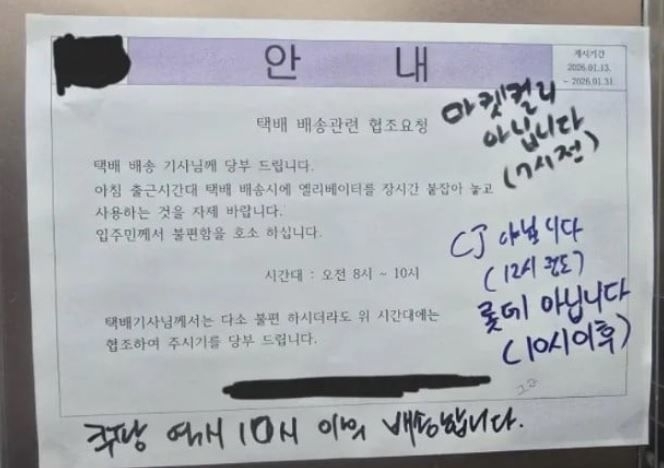 안 내
게시기간
2026.01.13.
~ 2026.01.31
택배 배송관련 협조요청
택배 배송 기사님께 당부 드립니다.
아침 출근시간대 택배 배송시에 엘리베이터를 장시간 붙잡아 놓고
사용하는 것을 자제 바랍니다.
입주민께서 불편함을 호소 하십니다.
시간대 : 오전 8시 ~ 10시
택배기사님께서는 다소 불편 하시더라도 위 시간대에는
협조하여 주시기를 당부 드립니다.
마켓컬리
아닙니다
(7시전)
CJ 아닙니다
(12시 정도)
롯데 아닙니다
(10시이후)
쿠팡 역시 10시 이후 배송합니다.